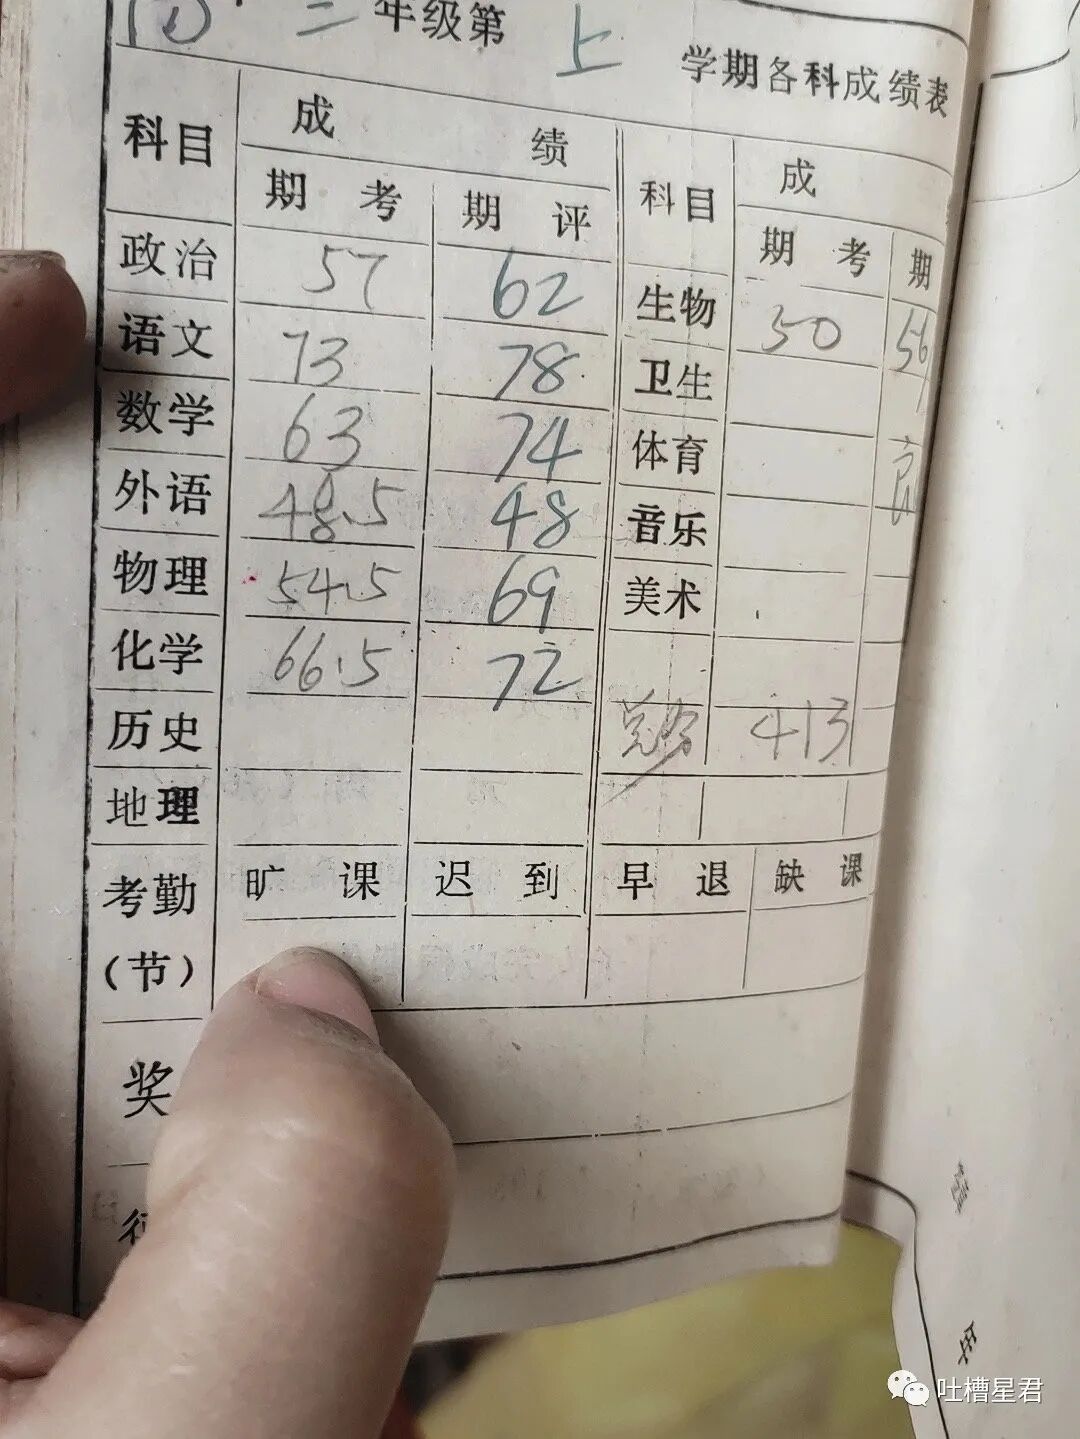 二年级第上学期各科成绩表
科目 成绩 科目 成
期考 期评 期考 期
政治 57 62 生物 50 56
语文 73 78 卫生
数学 63 74 体育 良
外语 48.5 48 音乐
物理 54.5 69 美术
化学 66.5 72
历史 总分 413
地理
考勤(节) 旷课 迟到 早退 缺课
奖
吐槽星君